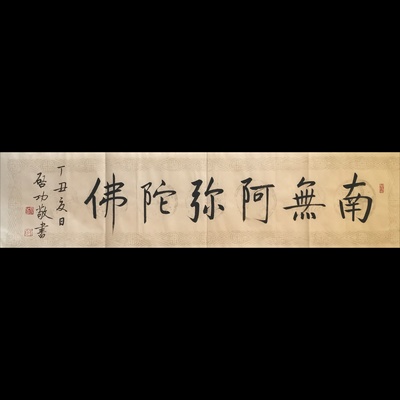 南無阿弥陀佛
丁丑夏日
啓功敬書